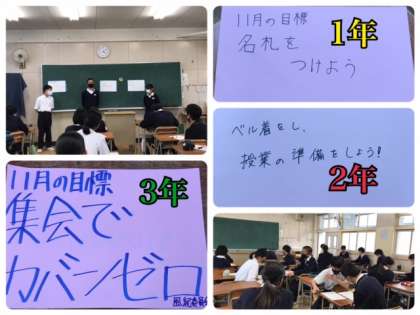 11月の目標
名札を
つけよう
1年
ベル着をし、
授業の準備をしよう!
2年
11月の目標
3年
集会で
カバーンゼロ